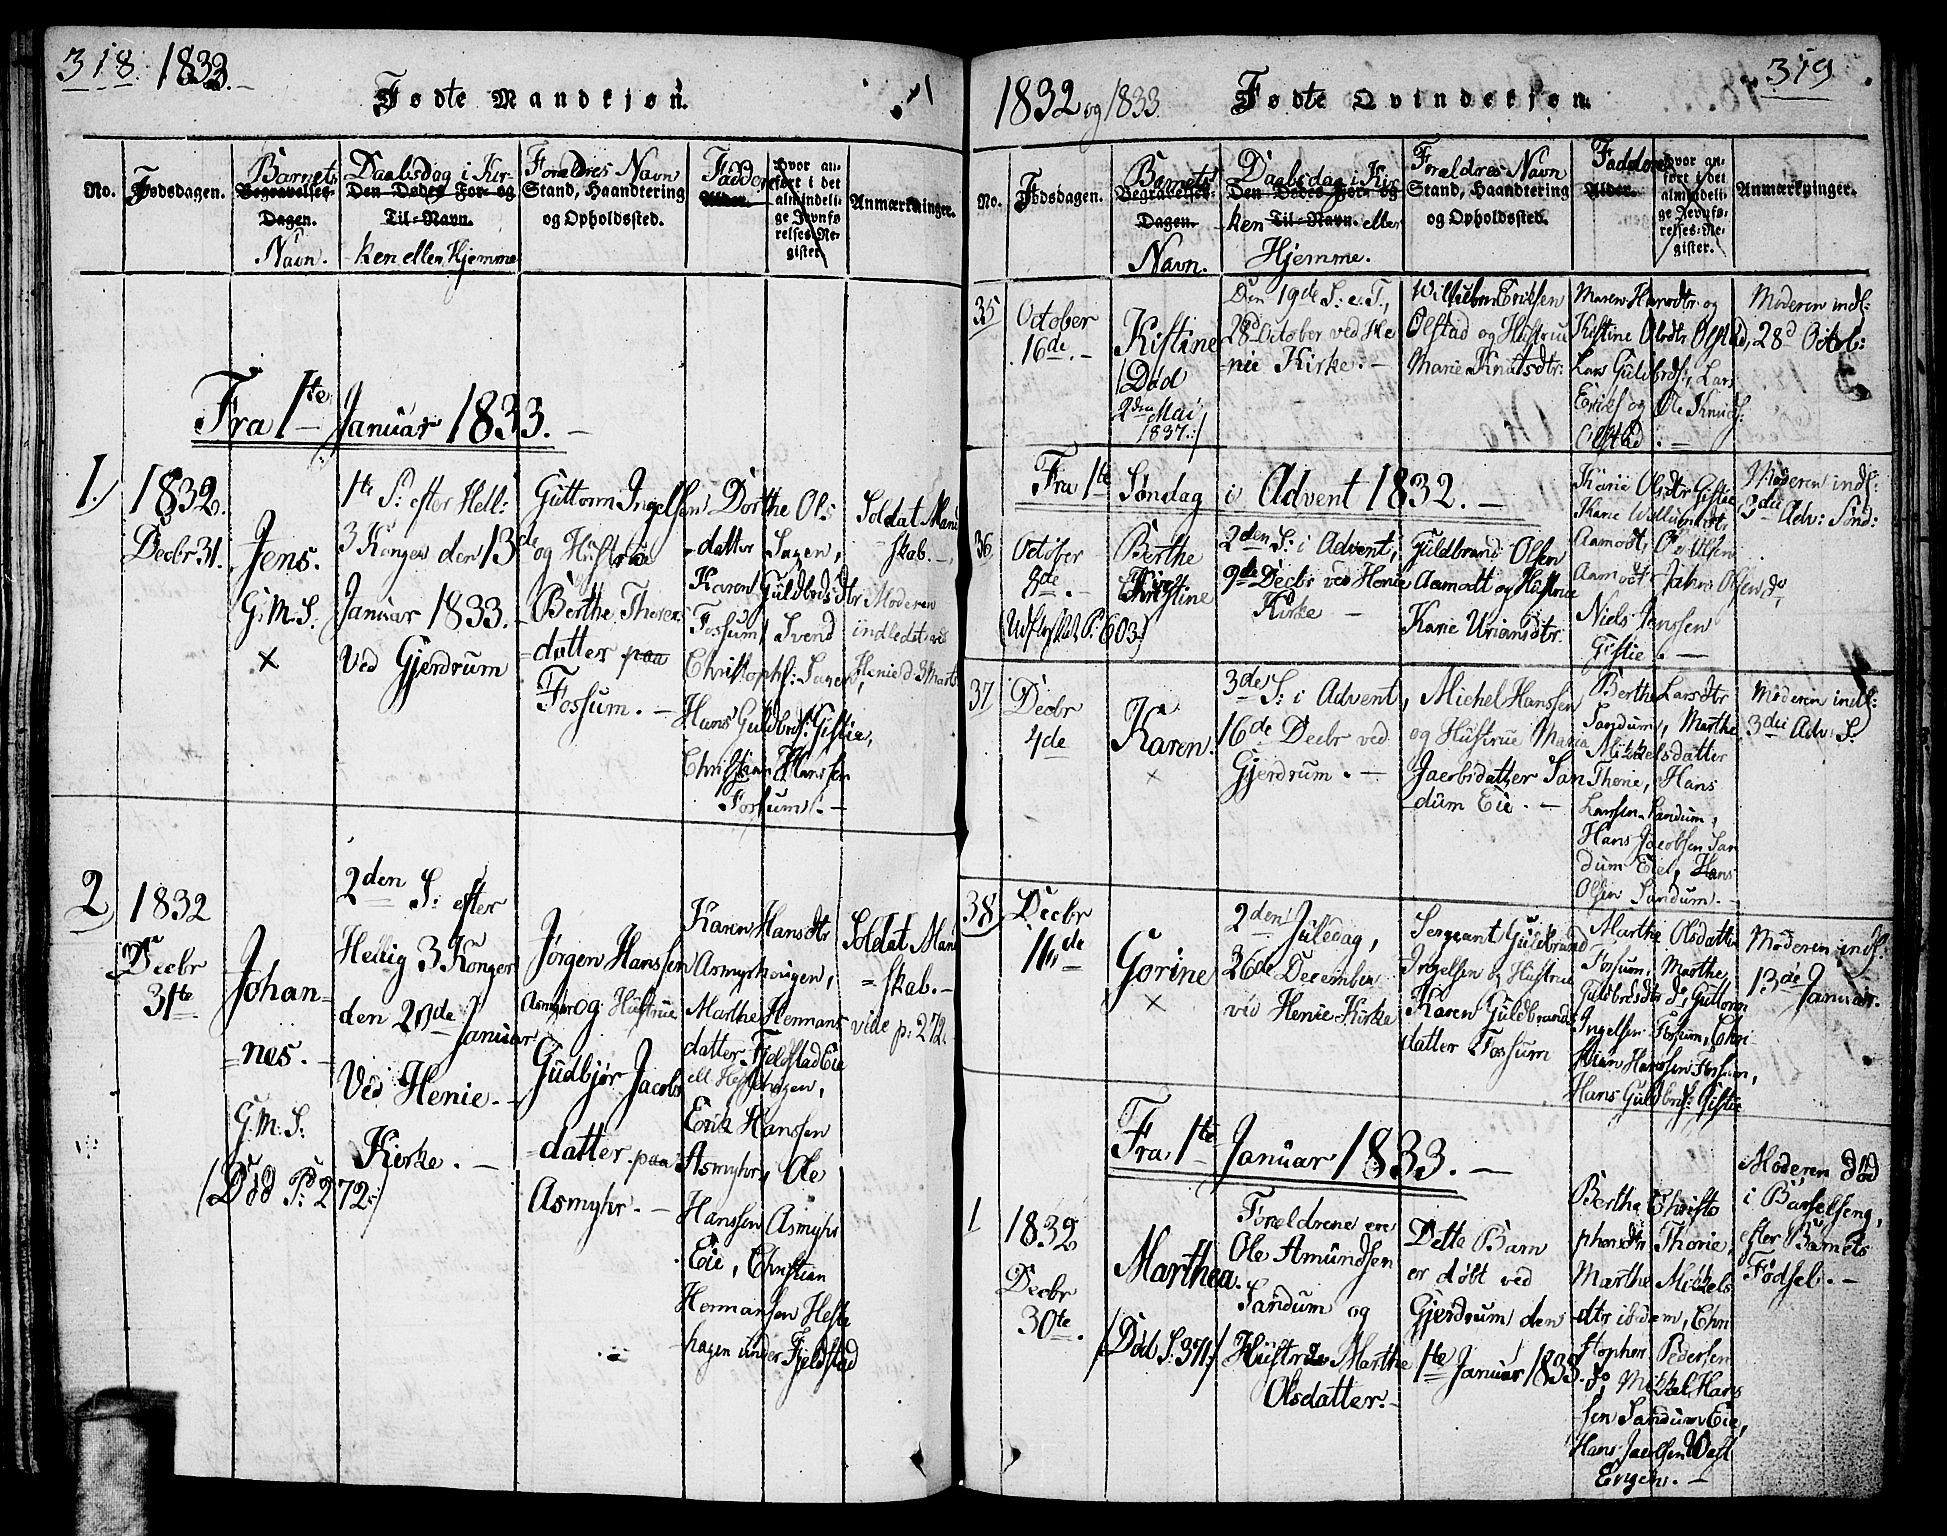 318. 1833.
Fødte Mandkjøn.
No.
Fødsdagen.
Barnets
Begravelses-
Dagen.
Navn.
Daabsdag i Kir-
Den Dødes For- og
Til-Navn.
ken eller Hjemme
Forældres Navn
Stand, Haandtering
og Opholdssted.
Faddere
Alder.
Hvor an-
ført i det
almindeli-
ge Jevnfø-
relses-Re-
gister.
Anmærkninger.
Fra 1te Januar 1833.
1.
1832.
Decbr 31.
Jens.
G.M.S.
1te S: efter Hell:
3 Konger den 13de
Januar 1833.
Ved Gjerdrum
Guttorm Ingelsen
og Hustrue
Berthe Thores-
datter paa
Fossum.
Dorthe Ols
datter Sagen,
Karen Guldbrdsdtr
Fossum, Svend
Christophs: Sagen,
Hans Guldbrds: Gistie,
Christian Hanssen
Fossum.
Soldat Mand
skab.
Moderen
indledst ved
Henie d. 3 Marts
2.
1832
Decbr
31te
Johan-
nes.
G.M.S.
(Død P. 272.)
2den S: efter
Hellig 3 Konger
den 20de Januar
Ved Henie
Kirke.
Jørgen Hanssen
Asmyhr og Hustrue
Gudbjør Jacobs
datter paa
Asmyhr.
Karen Hansdtr
Asmyrhougen,
Marthe Hermans
datter Fjelstad Eie
ell Hestehagen,
Erik Hanssen
Asmyhr, Ole
Hanssen Asmyhr
Eie, Christian
Hermansen Heste
hagen under Fjeldstad
Soldat Mand
skab.
vide p. 272.
1832 og 1833.
Fødte Qvindekjøn.
319
No.
Fødsdagen.
Barnets
Begravelses-
Dagen.
Navn.
Daabsdag i Kir-
Den Dødes For- og
ken Til-Navn. eller
Hjemme.
Forældres Navn
Stand, Haandtering
og Opholdssted.
Faddere
Alder.
Hvor an-
ført i det
almindeli-
ge Jevnfø-
relses-Re-
gister.
Anmærkninger.
35
October
16de.
Kistine
(Død
2den Mai
1837.)
Den 19de S: e. T.,
28d October ved He
nie Kirke.
Wilhelm Eriksen
Olstad og Hustrue
Marie Knutsdtr:
Maren Hansdtr og
Kistine Olsdtr Olstad,
Lars Guldbrds:, Lars
Eriks og Ole Knuds:
Olstad.
Moderen indl:
28d Octob:
Fra 1te Søndag i Advent 1832.
36.
October
8de.
(Udflyttet P. 603.)
Berthe
Christine
2den S: i Advent,
9de Decbr ved Henie
Kirke
Guldbrand Olsen
Aamodt og Hustrue
Karie Uriansdtr.
Karie Olsdtr Gistie
Karie Willumsdtr
Aamodt, Ole Olsen
Aamodt, Jahn Olsen do,
Niels Janssen
Gistie.
Moderen indl:
3die Adv: Sønd:
37
Decbr
4de
Karen.
3de S: i Advent,
16de Decbr ved
Gjerdrum.
Michel Hanssen
og Hustrue Maria
Jacobsdatter San
dum Eie.
Berthe Larsdtr
Sandum, Marthe
Mikkelsdatter
Thorie, Hans
Larssen Sandum,
Hans Jacobsen San
dum Eie, Hans
Olsen Sandum.
Moderen indl:
3die Adv: S.
38.
Decbr
11de
Gorine
2den Juledag,
26de December
ved Henie Kirke
Sergeant Guldbrand
Ingelsen og Hustrue
Karen Guldbrands
datter Fossum
Marthe Olsdatter
Fossum, Marthe
Guldbrdsdtr do, Guttorm
Ingelsen Fossum, Chri
stian Hanssen Fossum,
Hans Guldbrds: Gistie
Moderen indl:
13de Januar.
Fra 1te Januar 1833.
1
1832
Decbr
30te.
Marthea.
(Død S. 371.)
Forældrene ere
Ole Amundsen
Sandum og
Hustrue Marthe
Olsdatter.
Dette Barn
er døbt ved
Gjerdrum den
1te Januar 1833.
Berthe Christo
phersdtr Thorie,
Marthe Mickels
dtr ibidem, Chri
stopher Pedersen
do, Mikkel Hans
sen Sandum Eie,
Hans Jacobsen Wæst
Engen.
Moderen død
i Barselseng,
efter Barnets
Fødsel.